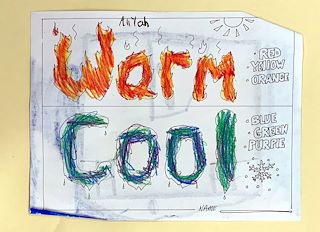 Aliyah
Warm
• RED
YELLOW
• ORANGE
Cool
• BLUE
• GREEN
• PURPLE
NAME